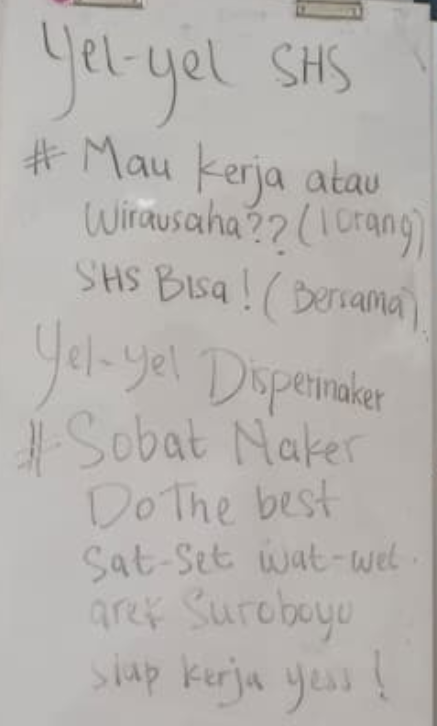 Yel-yel SHS
# Mau kerja atau
Wirausaha?? (1 Orang)
SHS Bisa! (Bersama).
Yel-yel Disperinaker
# Sobat Naker
Do The best
Sat-Set wat-wet.
arek Suroboyo
siap kerja yess!